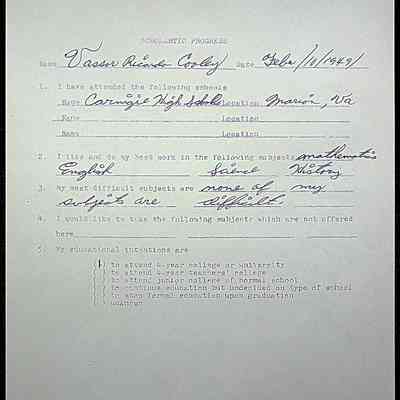 SCHOLASTIC PROGRESS
Name Vassor Ricardo Cooley Date Feb. /10/1949/
1. I have attended the following schools
Name Carnegie High School Location Marion, Va
Name Location
Name Location
2. I like and do my best work in the following subjects mathematics
English Science History
3. My most difficult subjects are none of my
subjects are difficult.
4. I would like to take the following subjects which are not offered
here
5. My educational intentions are
( ) to attend 4-year college or university
( ) to attend 4-year teachers' college
( ) to attend junior college or normal school
( ) to continue education but undecided on type of school
( ) to stop formal education upon graduation
( ) unknown